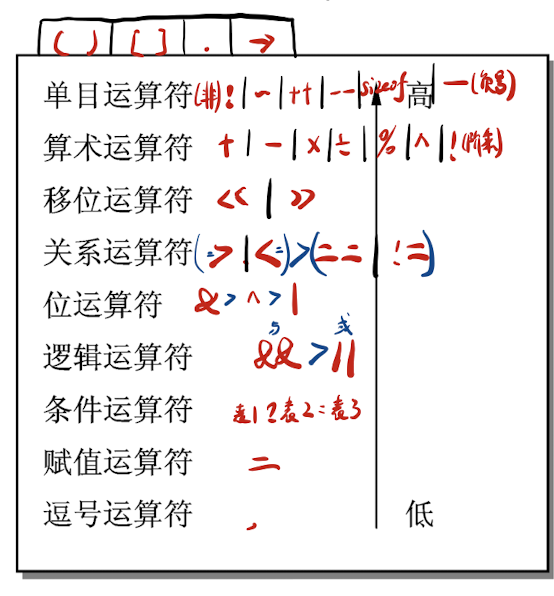 ( ) [ ] . →
单目运算符(非)! | ~ | ++ | -- | sizeof 高 | -(负号)
算术运算符 + | - | × | ÷ | % | ^ | !(阶乘)
移位运算符 << | >>
关系运算符(=> | <=)>(== | !=)
位运算符 & > ^ > |
与 或
逻辑运算符 && > ||
条件运算符 表1?表2:表3
赋值运算符 =
逗号运算符 , 低